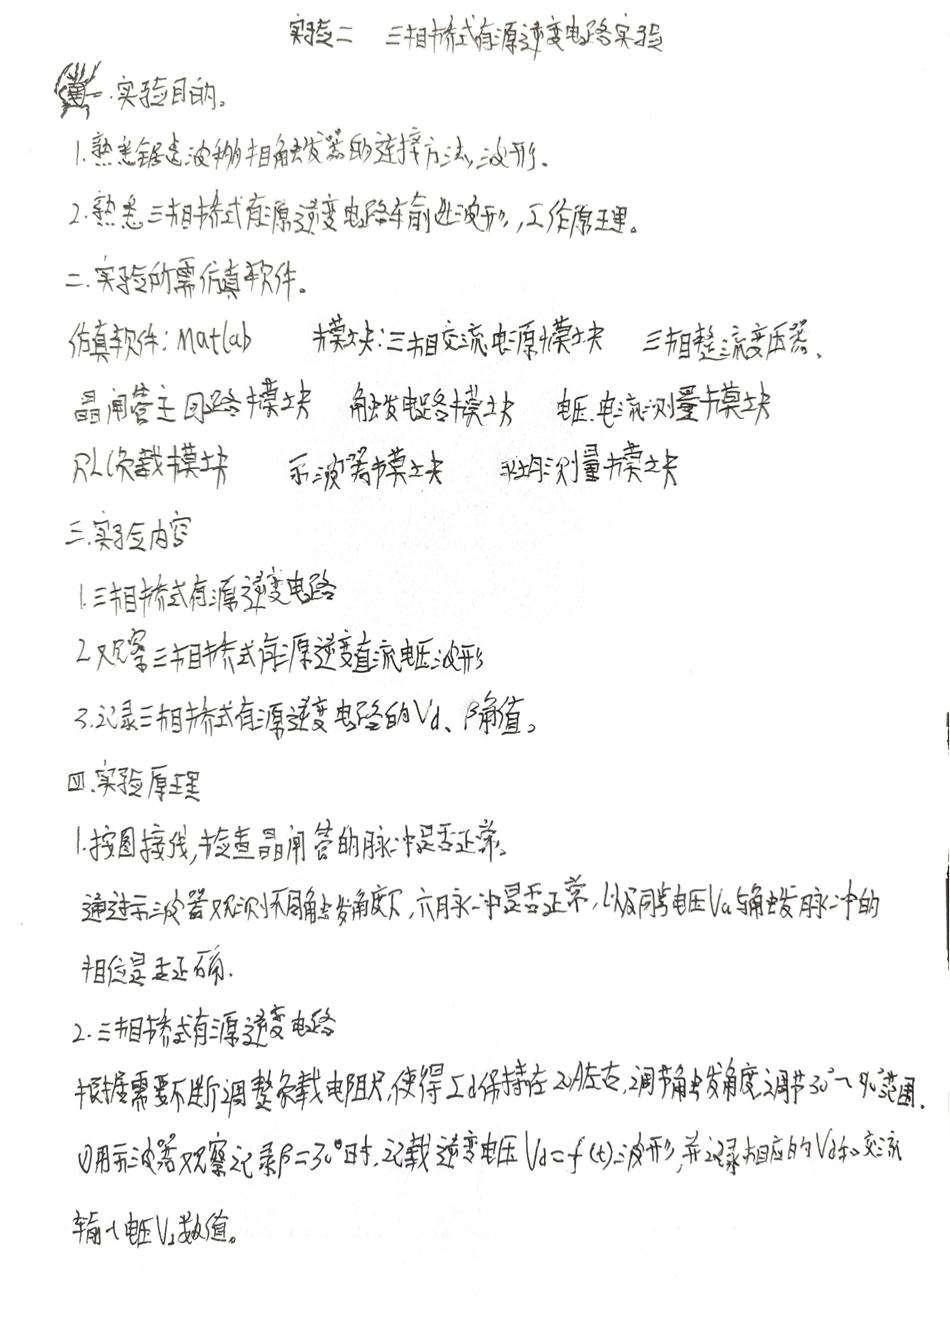 实验二 三相桥式有源逆变电路实验
一.实验目的。
1.熟悉锯齿波移相触发器的连接方法,波形.
2.熟悉三相桥式有源逆变电路车前出波形,工作原理。
二.实验所需仿真软件。
仿真软件:Matlab 模块:三相交流电源模块 三相整流变压器、
晶闸管主回路模块 触发电路模块 电压、电流测量模块
RLC负载模块 示波器模块 平均测量模块
三.实验内容
1.三相桥式有源逆变电路
2.观察三相桥式有源逆变直流电压波形
3.记录三相桥式有源逆变电路的Vd、β角值。
四.实验原理
1.按图接线,检查晶闸管的脉冲是否正常。
通过示波器观测不同触发角度下,六脉冲是否正常,以及同步电压Va与触发脉冲的
相位是否正确.
2.三相桥式有源逆变电路
根据需要不断调整负载电阻R,使得Id保持在20A左右,调节触发角度,调节30°~90°范围.
①用示波器观察记录β=30°时,记载逆变电压Vd=f(t)波形,并记录相应的Vd和交流
输入电压V2数值。